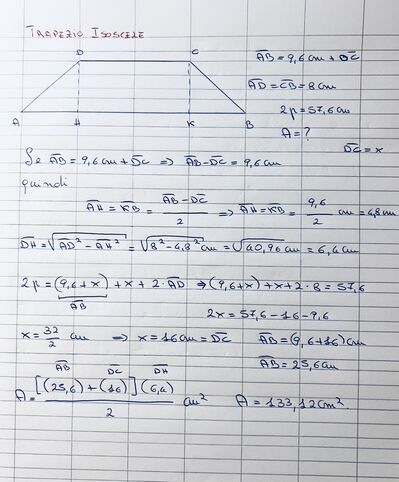 TRAPEZIO ISOSCELE
D C
A H K B
AB = 9,6 cm + DC
AD = CB = 8 cm
2p = 57,6 cm
A = ?
DC = x
Se AB = 9,6 cm + DC ⇒ AB - DC = 9,6 cm
quindi
AH = KB = (AB - DC)/2 ⇒ AH = KB = 9,6/2 cm = 4,8 cm
DH = √(AD² - AH²) = √(8² - 4,8²) cm = √40,96 cm = 6,4 cm
2p = (9,6 + x) + x + 2 · AD ⇒ (9,6 + x) + x + 2 · 8 = 57,6
AB
2x = 57,6 - 16 - 9,6
x = 32/2 cm ⇒ x = 16 cm = DC AB = (9,6 + 16) cm
AB = 25,6 cm
AB DC DH
A = [(25,6) + (16)] (6,4)/2 cm² A = 133,12 cm².